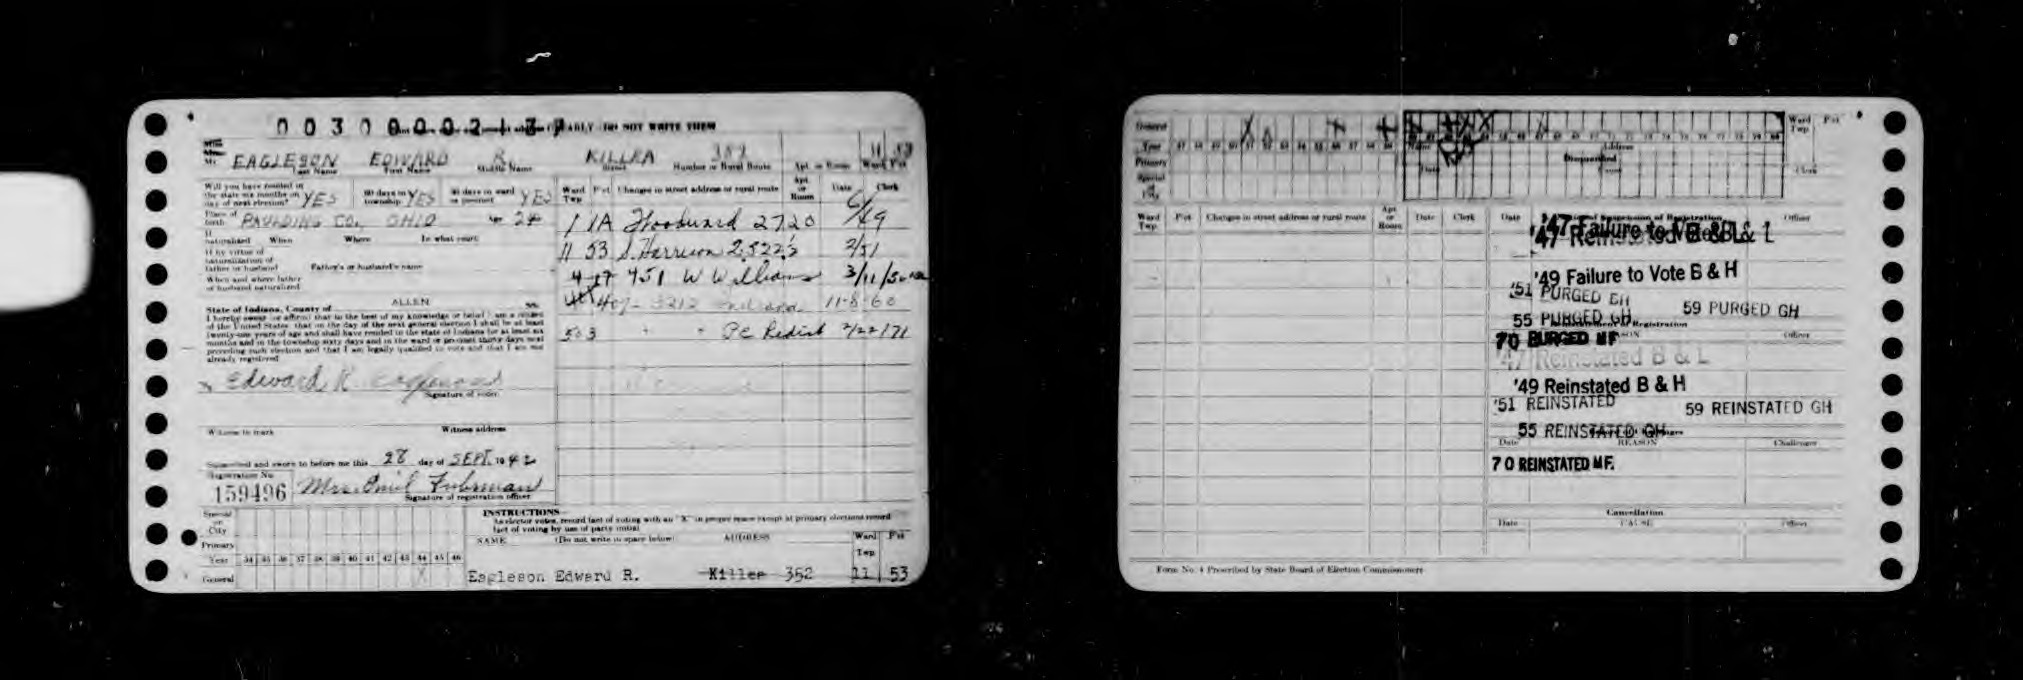 003000021
CLEARLY DO NOT WRITE THEM
Mr. EAGLESON EDWARD R KILLEA 352 11 53
Last Name First Name Middle Name Street Number or Rural Route Apt. or Room Ward Pct
Will you have resided in the state six months on day of next election? YES 60 days in township YES 30 days in ward or precinct YES
Ward Twp Pct Changes in street address or rural route Apt. or Room Date Clerk
Place of birth PAULDING CO., OHIO Age 24
If naturalized When Where In what court
If by virtue of naturalization of father or husband Father's or husband's name
When and where father or husband naturalized
1 1A Woodward 2720 6/49
11 53 S. Harrison 2522½ 2/51
4 17 451 W Williams 3/11/50
Indiana 11-8-60
503 " " PC Redist 2/22/71
State of Indiana, County of ALLEN ss.
I hereby swear (or affirm) that to the best of my knowledge or belief I am a citizen
of the United States, that on the day of the next general election I shall be at least
twenty-one years of age and shall have resided in the state of Indiana for at least six
months and in the township sixty days and in the ward or precinct thirty days next
preceding such election and that I am legally qualified to vote and that I am not
already registered
x Edward R Eagleson
Signature of voter
Witness to mark Witness address
Subscribed and sworn to before me this 28 day of SEPT. 1942
Registration No.
159496 Mrs. Emil Fuhrman
Signature of registration officer
INSTRUCTIONS
As elector votes, record fact of voting with an "X" in proper space except at primary elections record
fact of voting by use of party initial
Special or City
Primary
Year 34 35 36 37 38 39 40 41 42 43 44 45 46
General X
NAME (Do not write in space below) ADDRESS Ward Twp Pct
Eagleson Edward R. Killea 352 11 53
General
Year 47 48 49 50 51 52 53 54 55 56 57 58 59
Primary
Special or City
Name Address
Disqualified
Date Cause Clerk
Ward Twp Pct
Ward Twp Pct Changes in street address or rural route Apt. or Room Date Clerk
Date Reason of Suspension of Registration Officer
'47 Failure to Vote B & L
'47 Reinstated B & L
'49 Failure to Vote B & H
'51 PURGED GH
59 PURGED GH
55 PURGED GH
Reinstatement of Registration
REASON Officer
70 PURGED MF
'47 Reinstated B & L
'49 Reinstated B & H
'51 REINSTATED
59 REINSTATED GH
55 REINSTATED GH
Date REASON Challenger
70 REINSTATED MF.
Cancellation
Date CAUSE Officer
Form No. 4 Prescribed by State Board of Election Commissioners